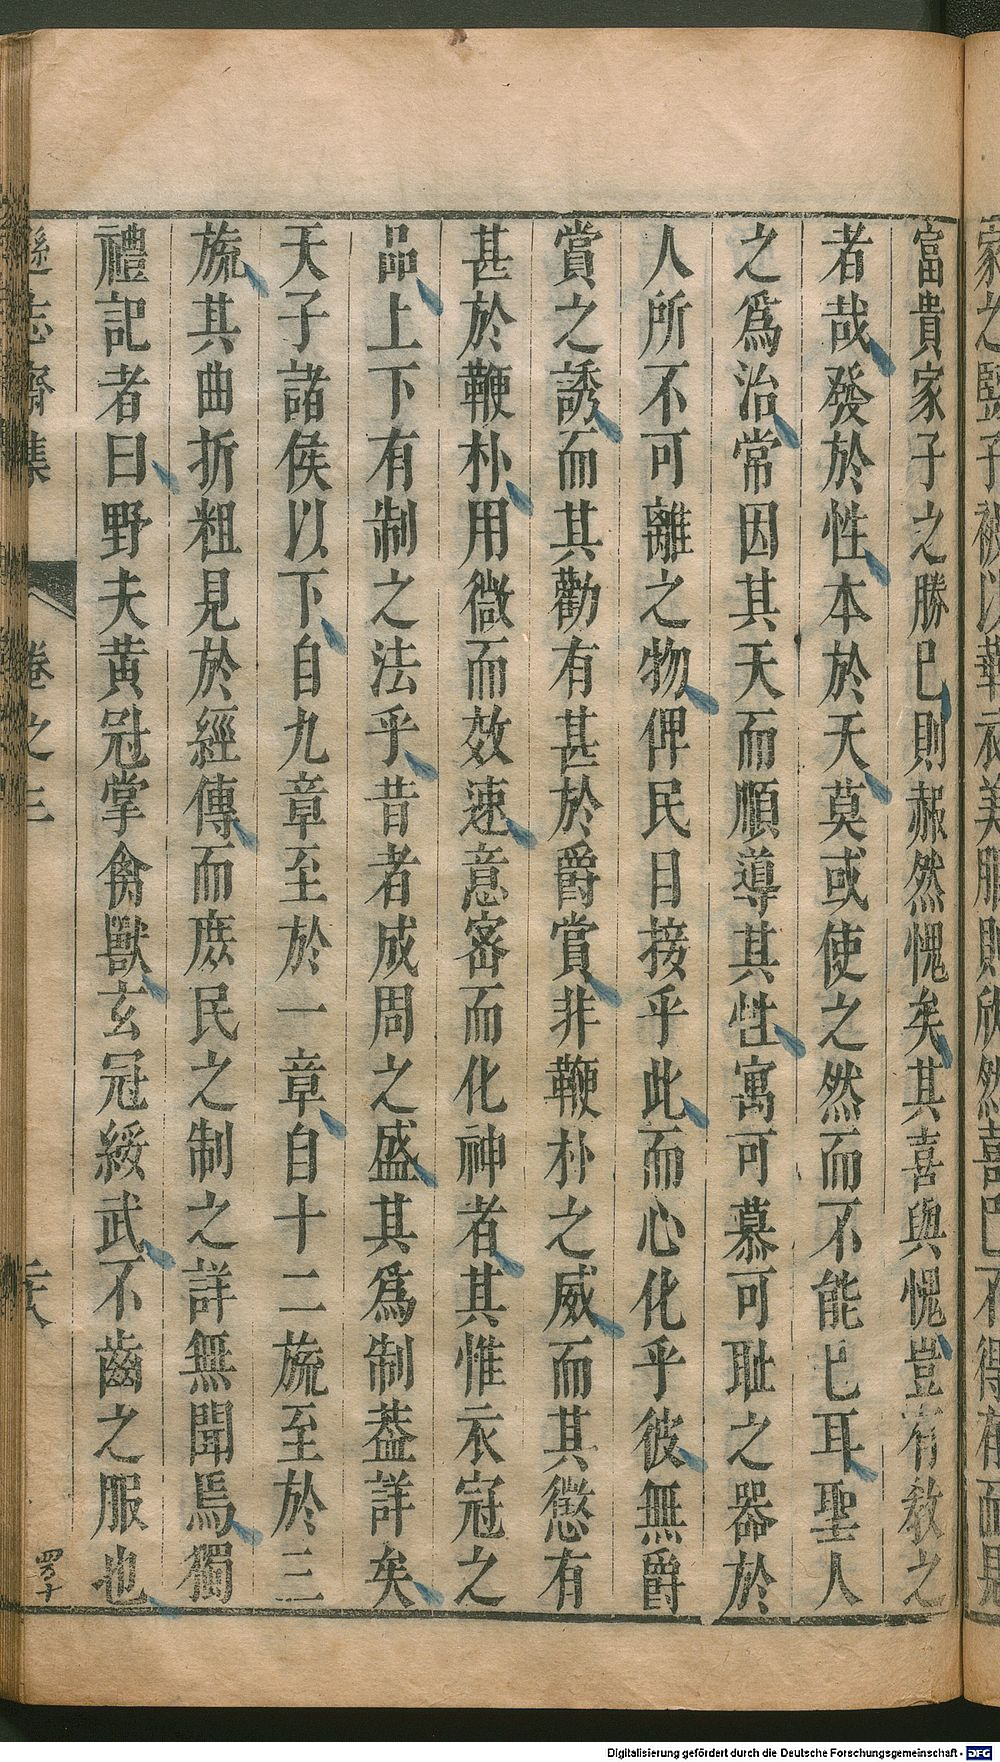 富貴家子之勝已則赧然愧矣其喜與愧豈有敎之
者哉發於性本於天莫或使之然而不能已耳聖人
之爲治常因其天而順導其性寓可慕可耻之器於
人所不可離之物俾民目接乎此而心化乎彼無爵
賞之誘而其勸有甚於爵賞非鞭朴之威而其懲有
甚於鞭朴用微而效速意密而化神者其惟衣冠之
品上下有制之法乎昔者成周之盛其爲制葢詳矣
天子諸侯以下自九章至於一章自十二旒至於三
旒其曲折粗見於經傳而庶民之制之詳無聞焉獨
禮記者曰野夫黃冠掌禽獸玄冠綏武不齒之服也
遜志齋集 卷之三 二十八
Digitalisierung gefördert durch die Deutsche Forschungsgemeinschaft - DFG